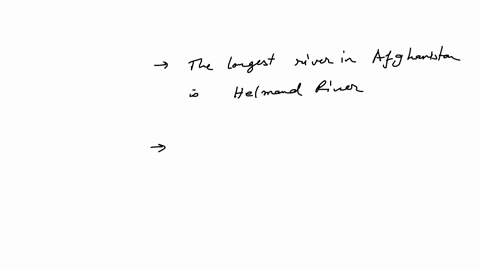 → The longest river in Afghanistan
is Helmand River
→